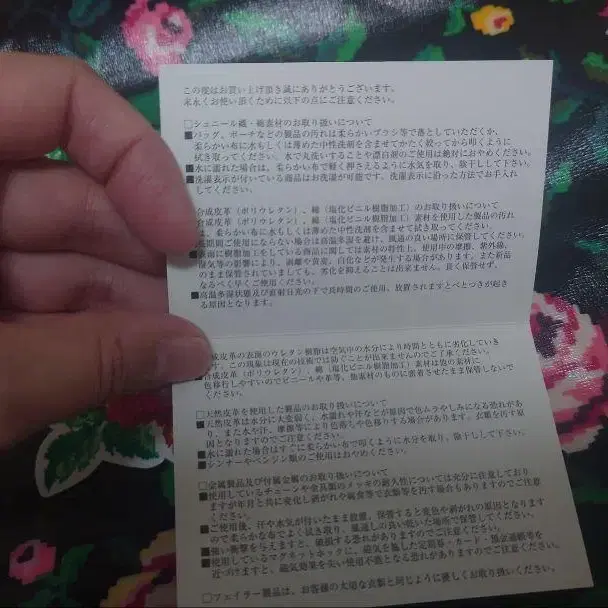 この度はお買い上げ頂き誠にありがとうございます。
末永くお使い頂くために以下の点にご注意ください。
□シェニール織・綿素材のお取り扱いについて
■バッグ、ポーチなどの製品の汚れは柔らかいブラシ等で落としていただくか、
柔らかい布に水もしくは薄めた中性洗剤を含ませてかたく絞ってから叩くように
拭き取ってください。水で丸洗いすることや漂白剤のご使用は絶対におやめください。
■水に濡れた場合は、柔らかい布で軽く押さえるように水気を取り、陰干しして下さい。
■洗濯表示が付いている商品はお洗濯が可能です。洗濯表示に沿った方法でお手入れ
してください。
合成皮革（ポリウレタン）、綿（塩化ビニル樹脂加工）のお取り扱いについて
合成皮革（ポリウレタン）、綿（塩化ビニル樹脂加工）素材を使用した製品の汚れ
は、柔らかい布に水もしくは薄めた中性洗剤を含ませて拭き取ってください。
期間ご使用にならない場合は高温多湿を避け、風通の良い場所に保管してください。
■表面に樹脂加工をしている商品に関しては素材の特性上、使用中の摩擦、紫外線、
湿気等の影響により、剥離や黄変、白化などが発生する場合があります。また新品
のまま保管されていましても、劣化を抑えることは出来ません。長く保管せず、
なるべく早くご使用ください。
■高温多湿状態及び直射日光の下で長時間のご使用、放置されますとべとつきが起き
る原因となります。
成皮革の表面のウレタン樹脂は空気中の水分により時間とともに劣化していき
す。この現象は現在の技術では防ぐことが出来ませんのでご了承ください。
合成皮革（ポリウレタン）、綿（塩化ビニル樹脂加工）素材は他の素材に
色移行しやすいのでビニールや革等、他素材のものに密着させたまま保管しないで
ください。
□天然皮革を使用した製品のお取り扱いについて
■天然皮革は水分に大変弱く、水濡れや汗などが原因で色ムラやしみになる恐れがあ
り、また水や汗、摩擦等により色落ちや色移りする場合があります。衣類を汚す原
因となりますのでご注意ください。
■水に濡れた場合はすぐに柔らかい布で叩くように水分を取り、陰干しして下さい。
■シンナーやベンジン類のご使用はおやめください。
□金属製品及び付属金属のお取り扱いについて
■使用しているチェーンや金具類のメッキの耐久性については充分に注意しており
ますが年月と共に変化し剥がれや腐食等で衣類等を汚す場合もありますのでご注意
ください。
■ご使用後、汗や水気が付いたまま放置、保管すると変色や剥がれの原因となります
ので柔らかな布でよく拭き取り、風通しの良い乾いた場所で保管してください。
■強い衝撃を与えますと、破損する恐れがありますのでご注意ください。
■使用しているマグネットホックに、磁気を施した定期券・カード・預金通帳等を
近づけますと、磁気効果を失い使用不能となる恐れがありますのでご注意ください。
□フェイラー製品は、お客様の大切な衣類と同じように優しくお取り扱いください。